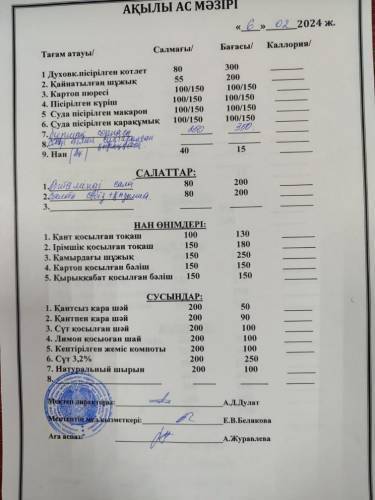 АҚЫЛЫ АС МӘЗІРІ
« 6 » 02 2024 ж.
Тағам атауы/ Салмағы/ Бағасы/ Каллория/
1 Духовк.пісірілген котлет 80 300
2. Қайнатылған шұжық 55 200
3. Картоп пюресі 100/150 100/150
4. Пісірілген күріш 100/150 100/150
5 Суда пісірілген макарон 100/150 100/150
6. Суда пісірілген қарақұмық 100/150 100/150
7. 300
8.
9. Нан 40 15
САЛАТТАР:
1. 80 200
2. 80 200
3.
НАН ӨНІМДЕРІ:
1. Қант қосылған тоқаш 100 130
2. Ірімшік қосылған тоқаш 150 180
3. Қамырдағы шұжық 150 250
4. Картоп қосылған бәліш 150 150
5. Қырыққабат қосылған бәліш 150 150
СУСЫНДАР:
1. Қантсыз қара шәй 200 50
2. Қантпен қара шәй 200 90
3. Сүт қосылған шәй 200 100
4. Лимон қосыоған шай 200 100
5. Кептірілген жеміс компоты 200 100
6. Сүт 3,2% 200 250
7. Натуральный шырын 200 100
8.
Мектеп директоры: А.Д.Дулат
Мектептің мед.қызметкері: Е.В.Белякова
Аға аспаз: А.Журавлева